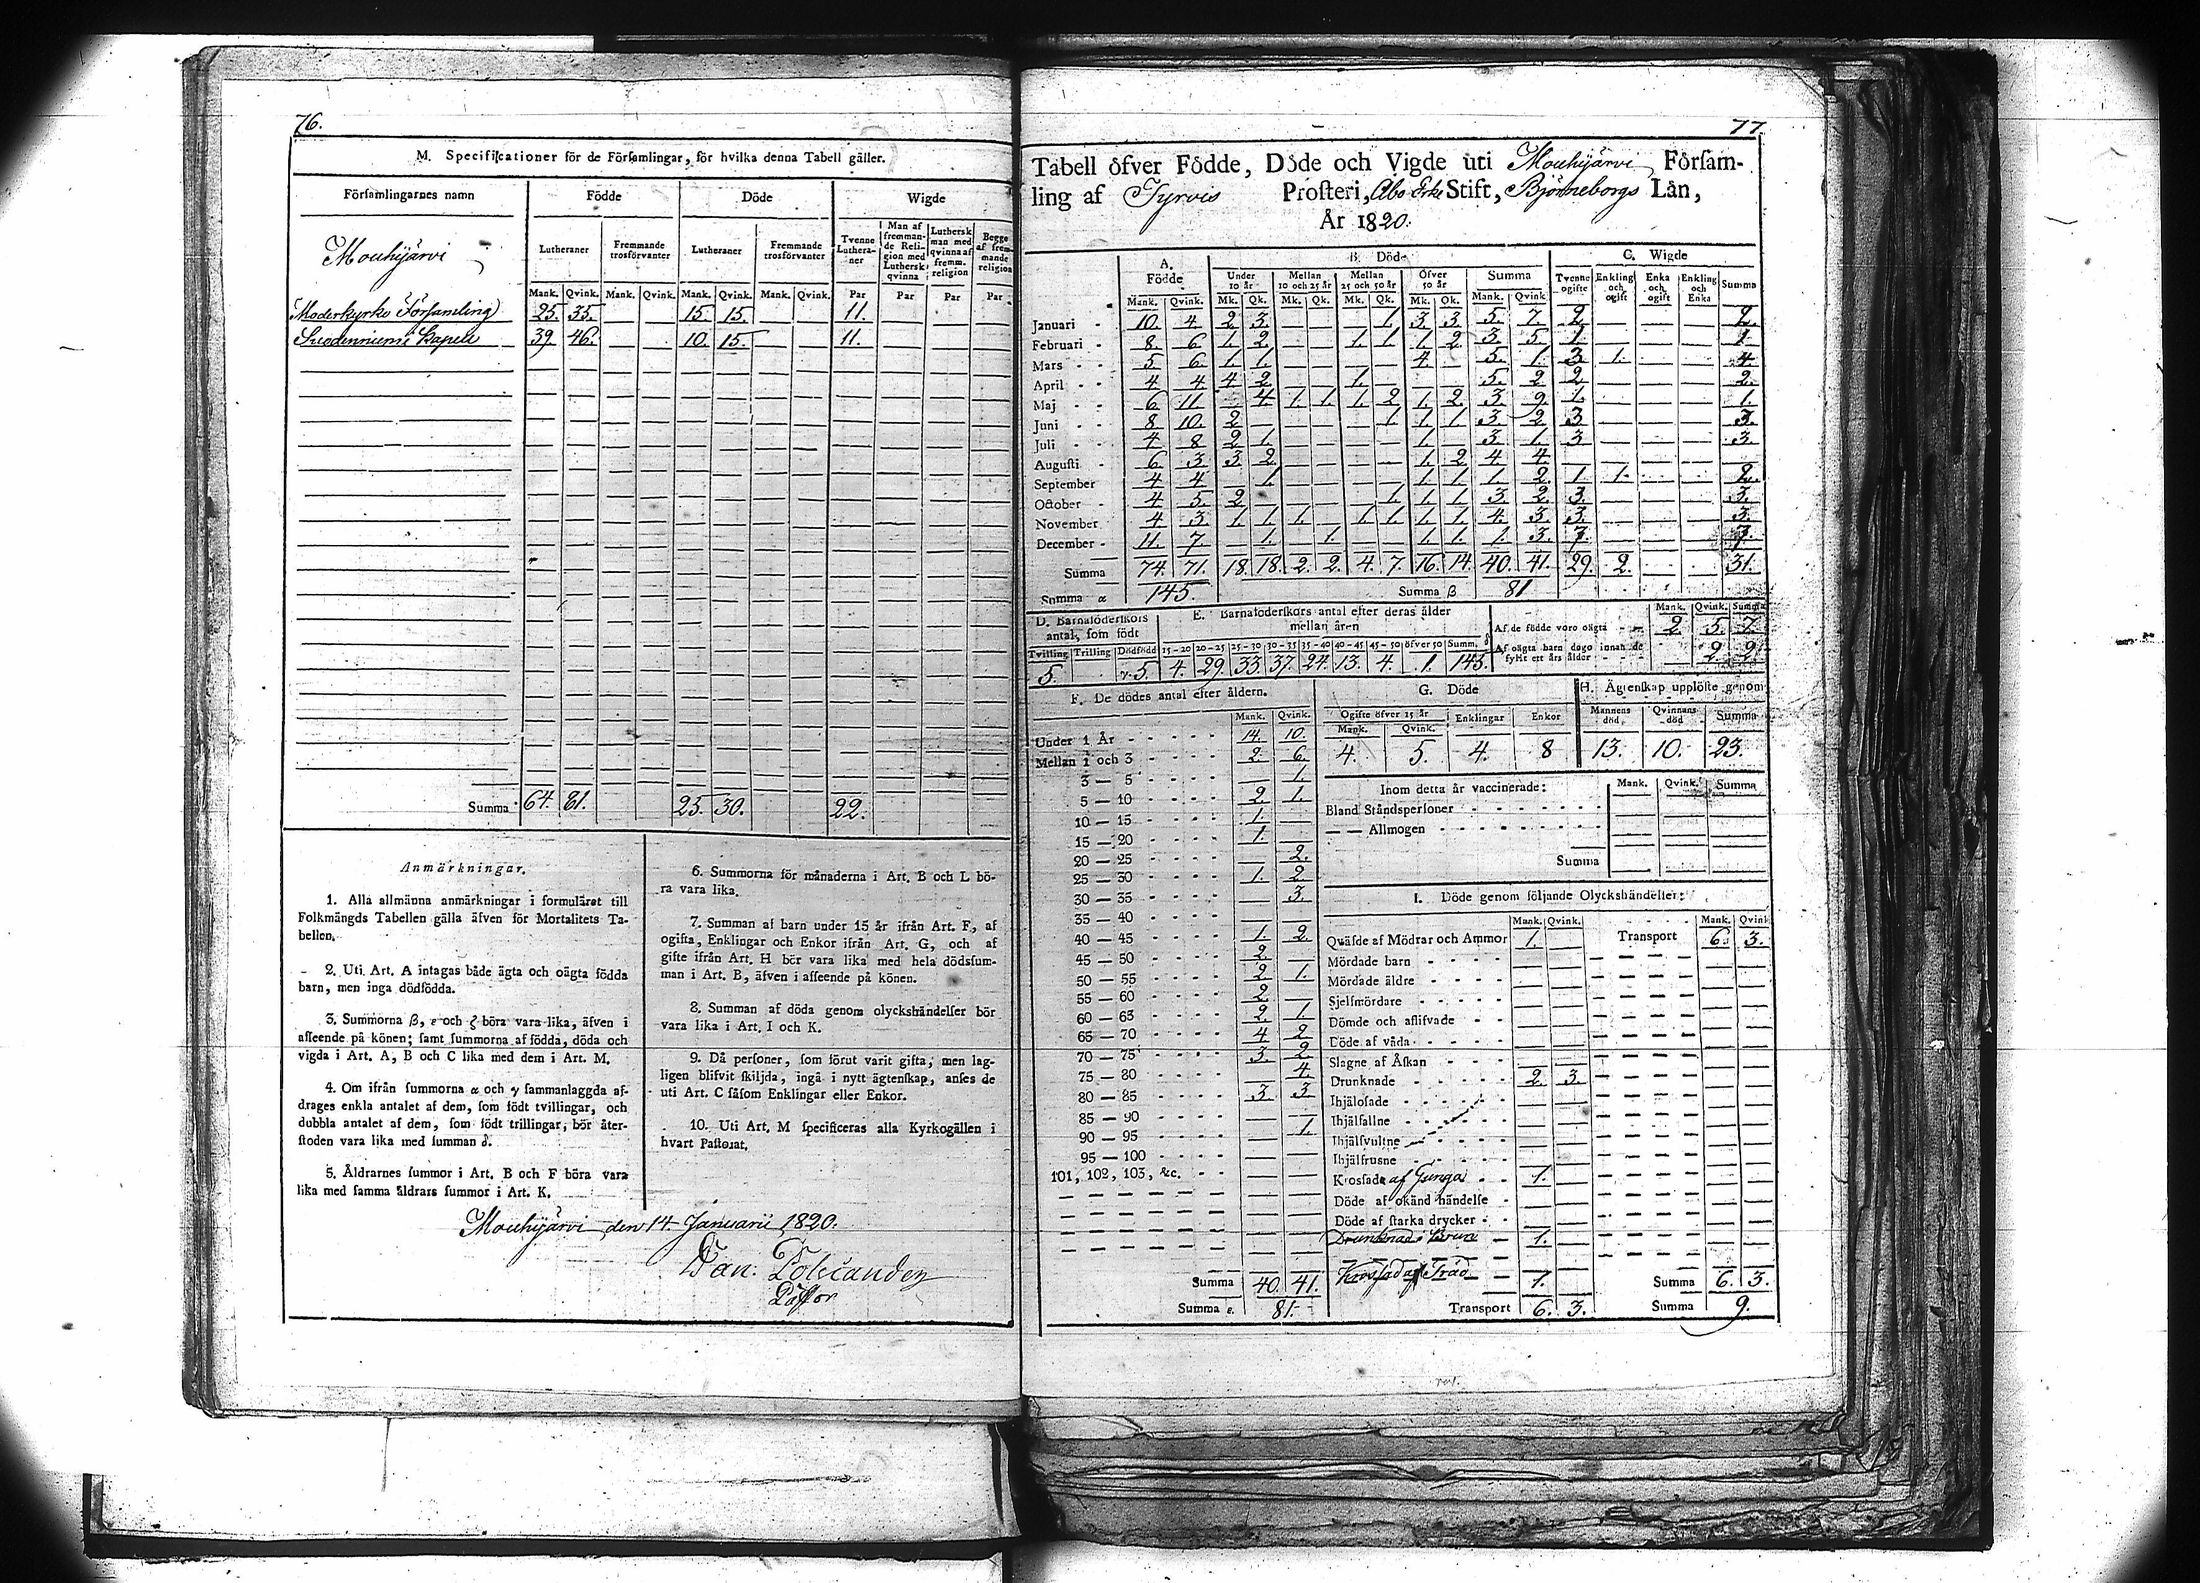 76.
M. Specificationer för de Församlingar, för hvilka denna Tabell gäller.
Församlingarnes namn Födde Döde Wigde
Mouhijärvi
Lutheraner Fremmande trosförvanter Lutheraner Fremmande trosförvanter Tvenne Lutheraner Man af fremmande Religion med Luthersk qvinna Luthersk man med qvinna af fremm. religion Begge af fremmande religion
Mank. Qvink. Mank. Qvink. Mank. Qvink. Mank. Qvink. Par Par Par Par
Moderkyrko Församling 25. 35. 15. 15. 11.
Kapell 39. 46. 10. 15. 11.
Summa 64. 81. 25. 30. 22.
Anmärkningar.
1. Alla allmänna anmärkningar i formuläret till
Folkmängds Tabellen gälla äfven för Mortalitets Ta-
bellen.
2. Uti Art. A intagas både ägta och oägta födda
barn, men inga dödfödda.
3. Summorna β, ε och ζ böra vara lika, äfven i
afseende på könen; samt summorna af födda, döda och
vigda i Art. A, B och C lika med dem i Art. M.
4. Om ifrån summorna α och γ sammanlaggda af-
drages enkla antalet af dem, som födt tvillingar, och
dubbla antalet af dem, som födt trillingar, bör åter-
stoden vara lika med summan δ.
5. Åldrarnes summor i Art. B och F böra vara
lika med samma åldrars summor i Art. K.
6. Summorna för månaderna i Art. B och L bö-
ra vara lika.
7. Summan af barn under 15 år ifrån Art. F, af
ogifta, Enklingar och Enkor ifrån Art. G, och af
gifte ifrån Art. H bör vara lika med hela dödssum-
man i Art. B, äfven i afseende på könen.
8. Summan af döda genom olyckshändelser bör
vara lika i Art. I och K.
9. Då personer, som förut varit gifta, men lag-
ligen blifvit skiljda, ingå i nytt ägtenskap, anses de
uti Art. C såsom Enklingar eller Enkor.
10. Uti Art. M specificeras alla Kyrkogällen i
hvart Pastorat.
Mouhijärvi den 14. Januarii 1820.
Dan: Polviander
Pastor
77.
Tabell öfver Födde, Döde och Vigde uti Mouhijärvi Försam-
ling af Tyrvis Prosteri, Åbo Erke Stift, Björneborgs Län,
År 1820.
A. Födde B. Döde C. Wigde
Under 10 år Mellan 10 och 25 år Mellan 25 och 50 år Öfver 50 år Summa Tvenne ogifte Enkling och ogift Enka och ogift Enkling och Enka Summa
Mank. Qvink. Mk. Qk. Mk. Qk. Mk. Qk. Mk. Qk. Mank. Qvink
Januari 10 4 2 3 1 3 3 5 7 2 2.
Februari 8 6 1. 2 1 1 1 2 3 5 1 1
Mars 5 6 1. 1. 4. 5. 1. 3 1. 4
April 4 4 4 2 1. 5. 2 2 2.
Maj 6 11. 4 1. 1. 1. 2 1. 2. 3 9. 1. 1.
Juni 8 10. 2 1. 1. 1 3. 2 3 3.
Juli 4 8 2 1. 1. 3 1. 3 3.
Augusti 6 3 3 2. 1. 2 4 4.
September 4 4 1. 1. 1 1. 2. 1 1. 2.
October 4 5 2 1. 1. 1 3 2 3. 3.
November 4 3. 1. 1. 1. 1. 1. 1. 1. 4. 3 3. 3.
December 11. 7. 1. 1. 1. 1. 1. 3 7. 7.
Summa 74. 71. 18. 18. 2. 2. 4. 7. 16. 14. 40. 41. 29. 2. 31.
Summa α 145. Summa β 81
D. Barnaföderskors antal, som födt
Tvilling Trilling Dödfödd
5. γ. 5.
E. Barnaföderskors antal efter deras ålder mellan åren
15—20 20—25 25—30 30—35 35—40 40—45 45—50 öfver 50 Summ. δ
4. 29. 33. 37. 24. 13. 4. 1 145.
Mank. Qvink. Summa
Af de födde voro oägta 2. 5. 7.
Af oägta barn dogo innan de fyllt ett års ålder 2. 2.
F. De dödes antal efter åldern.
Mank. Qvink.
Under 1 År 14. 10.
Mellan 1 och 3 2. 6.
3 — 5 1.
5 — 10 2. 1.
10 — 15 1.
15 — 20 1.
20 — 25 2.
25 — 30 1. 2.
30 — 35 3.
35 — 40
40 — 45 1. 2.
45 — 50 2.
50 — 55 2. 1.
55 — 60 2.
60 — 65 2. 1.
65 — 70 4. 2.
70 — 75 3. 2.
75 — 80 4.
80 — 85 3. 3.
85 — 90
90 — 95 1.
95 — 100
101, 102, 103, &c.
Summa 40. 41.
Summa ε. 81.
G. Döde
Ogifte öfver 15 år Enklingar Enkor
Mank. Qvink.
4. 5. 4. 8
H. Ägtenskap upplöste genom
Mannens död, Qvinnans död Summa
13. 10. 23.
Inom detta år vaccinerade: Mank. Qvink. Summa
Bland Ståndspersoner
— — Allmogen
Summa
I. Döde genom följande Olyckshändelser:
Mank. Qvink. Mank. Qvink
Qväfde af Mödrar och Ammor 1. Transport 6. 3.
Mördade barn
Mördade äldre
Sjelfmördare
Dömde och aflifvade
Döde af våda
Slagne af Åskan
Drunknade 2. 3.
Ihjälosade
Ihjälfallne
Ihjälsvultne
Ihjälfrusne
Krossade af Gunga 1.
Döde af okänd händelse
Döde af starka drycker
Drunknad i Brun 1.
Krossad af Träd 1. Summa 6. 3.
Transport 6. 3. Summa 9.